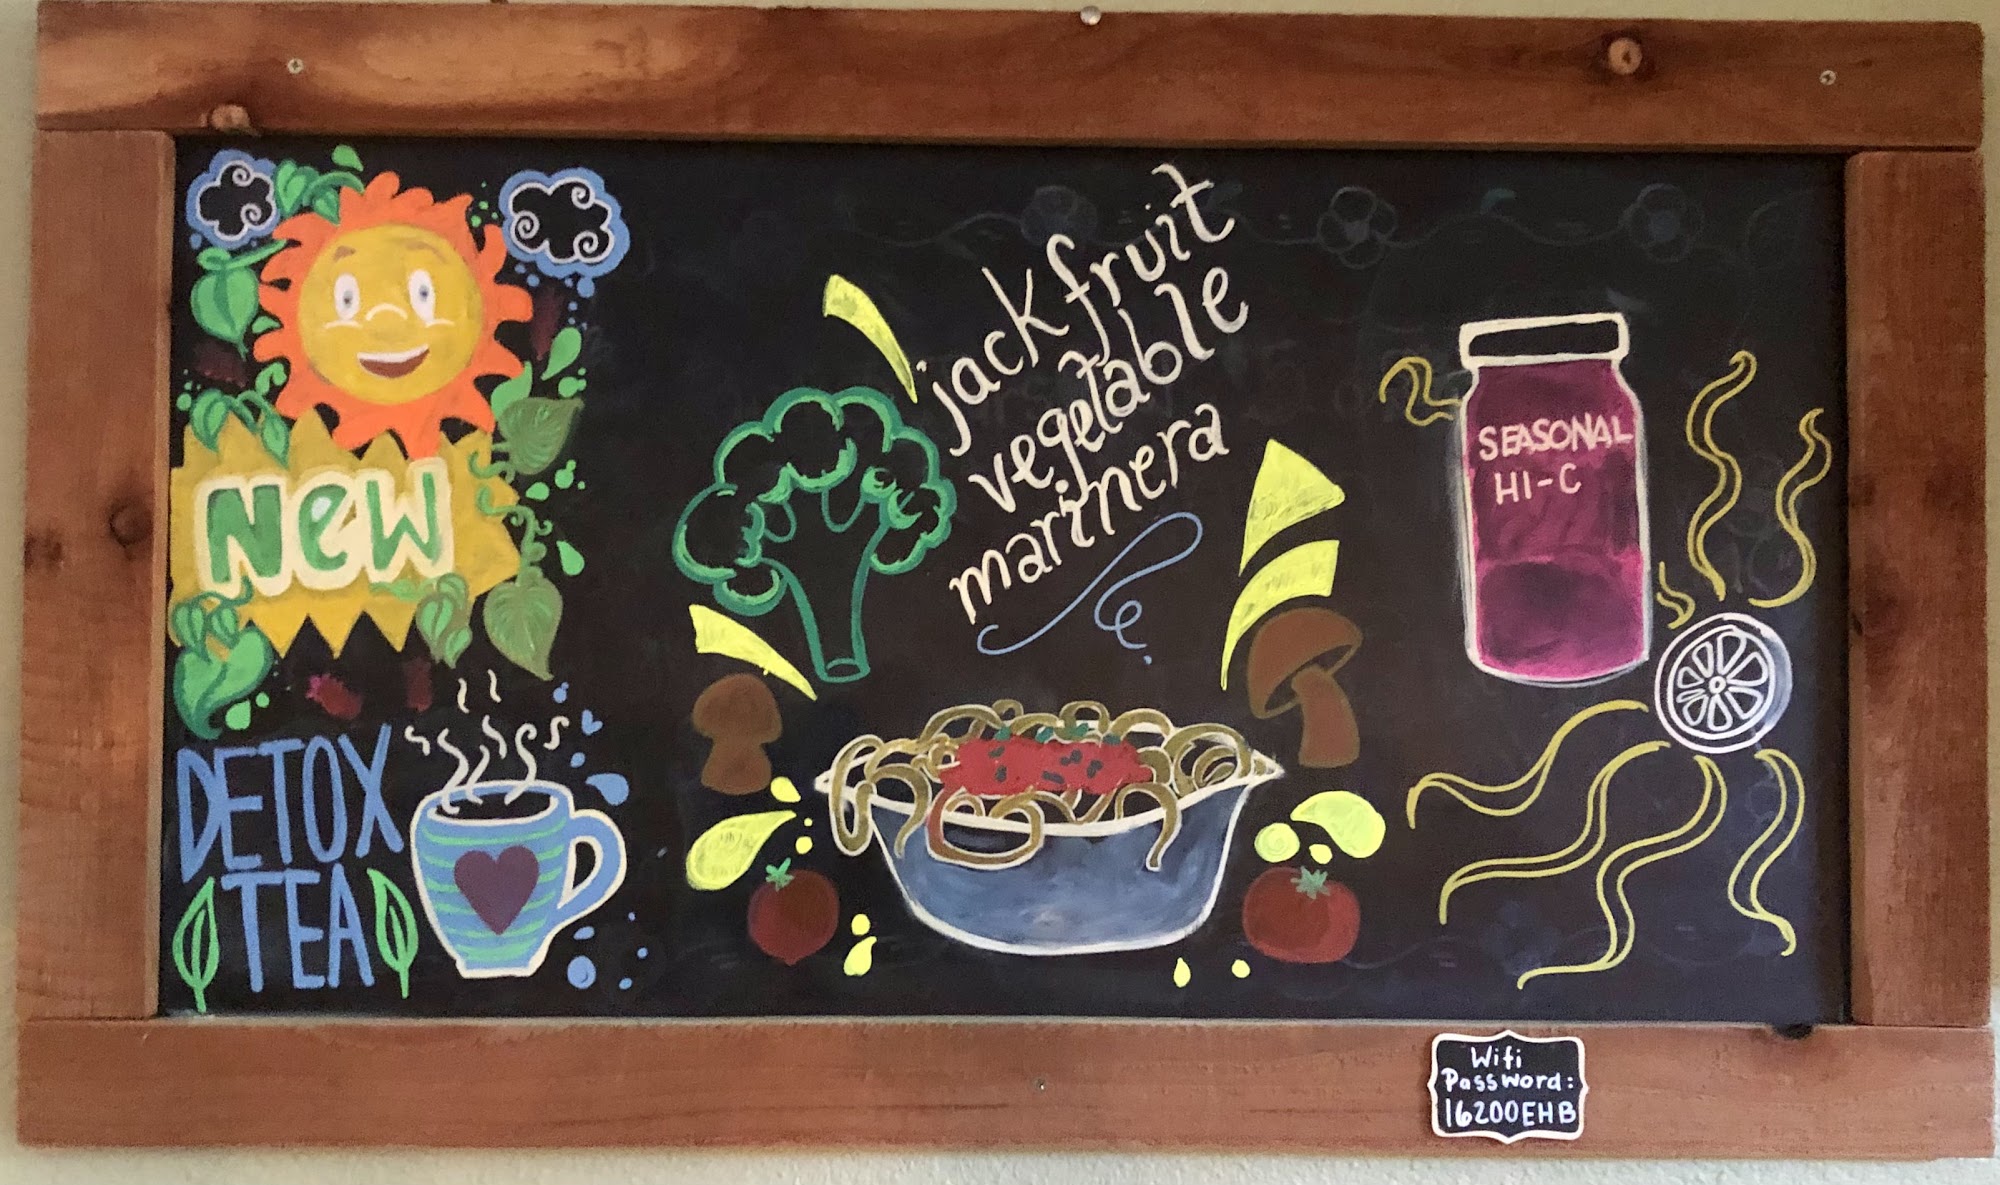 New
DETOX
TEA
jackfruit
vegetable
marinera
SEASONAL
HI-C
Wifi
Password:
16200EHB